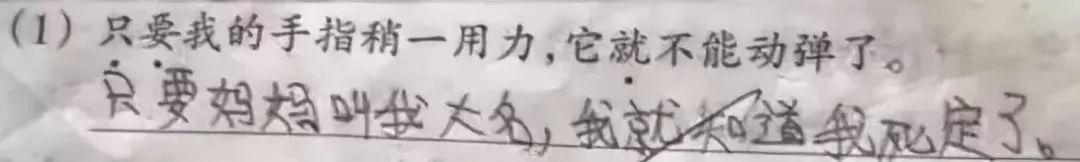 (1) 只要我的手指稍一用力,它就不能动弹了。
只要妈妈叫我大名,我就知道我死定了。